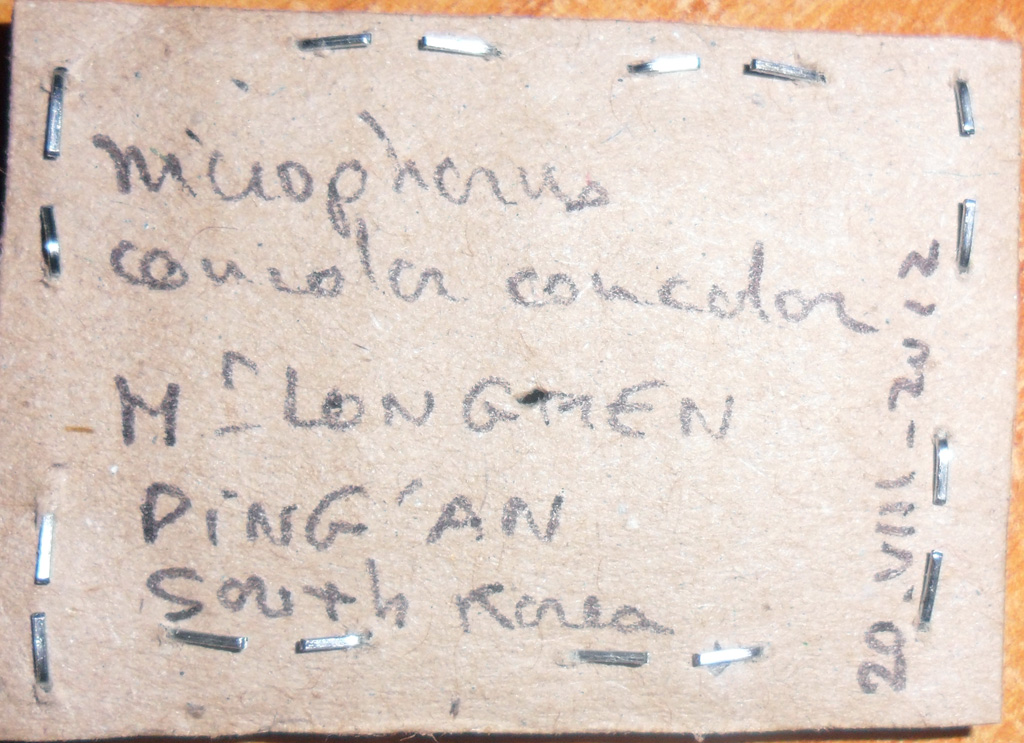 nicrophorus
concolor concolor
Mt LONGMEN
PiNG'AN
South Korea
20-VIII-2012